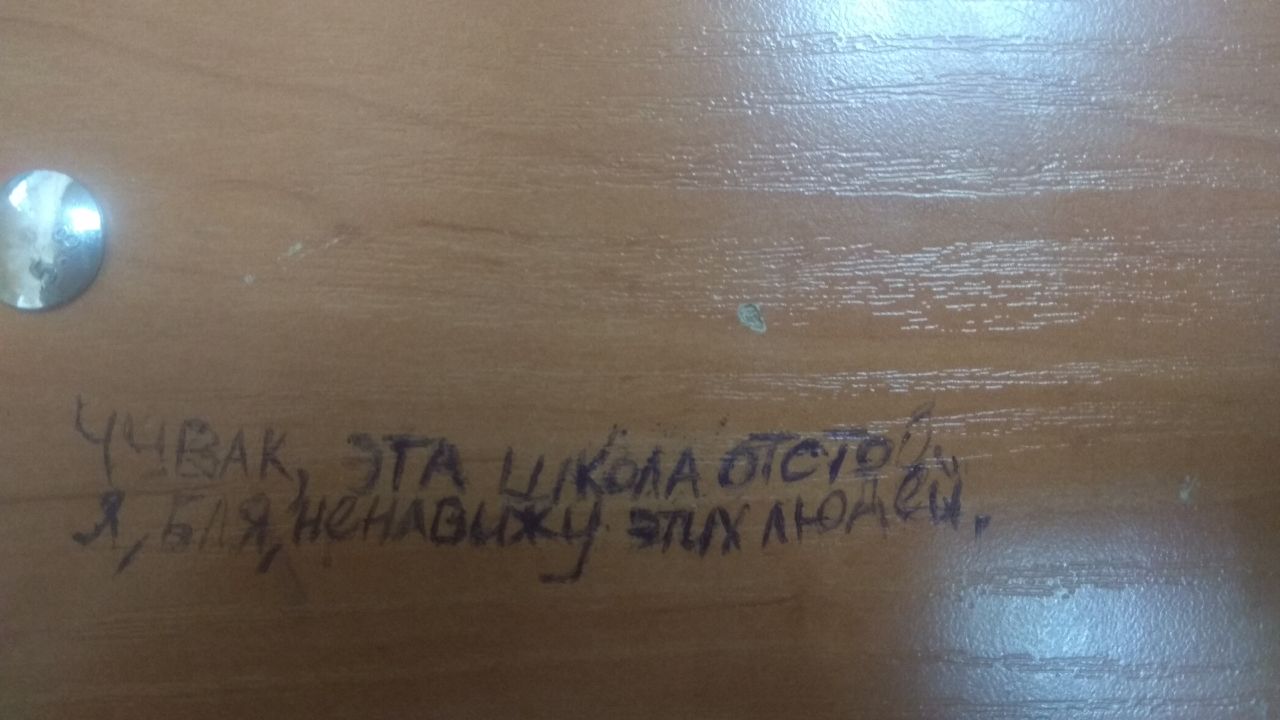 ЧУВАК, ЭТА ШКОЛА ОТСТОЙ.
Я, БЛЯ, НЕНАВИЖУ ЭТИХ ЛЮДЕЙ.